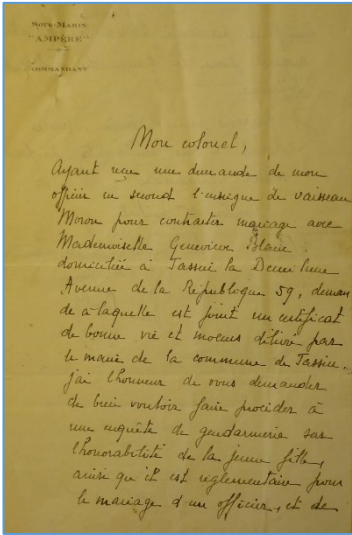 SOUS-MARIN
"AMPÈRE"
COMMANDANT
Mon colonel,
Ayant reçu une demande de mon
officier en second l'enseigne de vaisseau
Moron pour contracter mariage avec
Mademoiselle Geneviève Blanc
domiciliée à Tassin la Demi lune
Avenue de la République 59, deman
de à laquelle est joint un certificat
de bonne vie et moeurs délivré par
le maire de la commune de Tassin.
j'ai l'honneur de vous demander
de bien vouloir faire procéder à
une enquête de gendarmerie sur
l'honorabilité de la jeune fille,
ainsi qu'il est réglementaire pour
le mariage d'un officier, et de